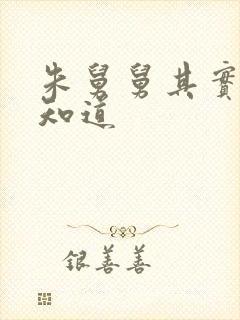 朱舅舅其實
知道
银善善